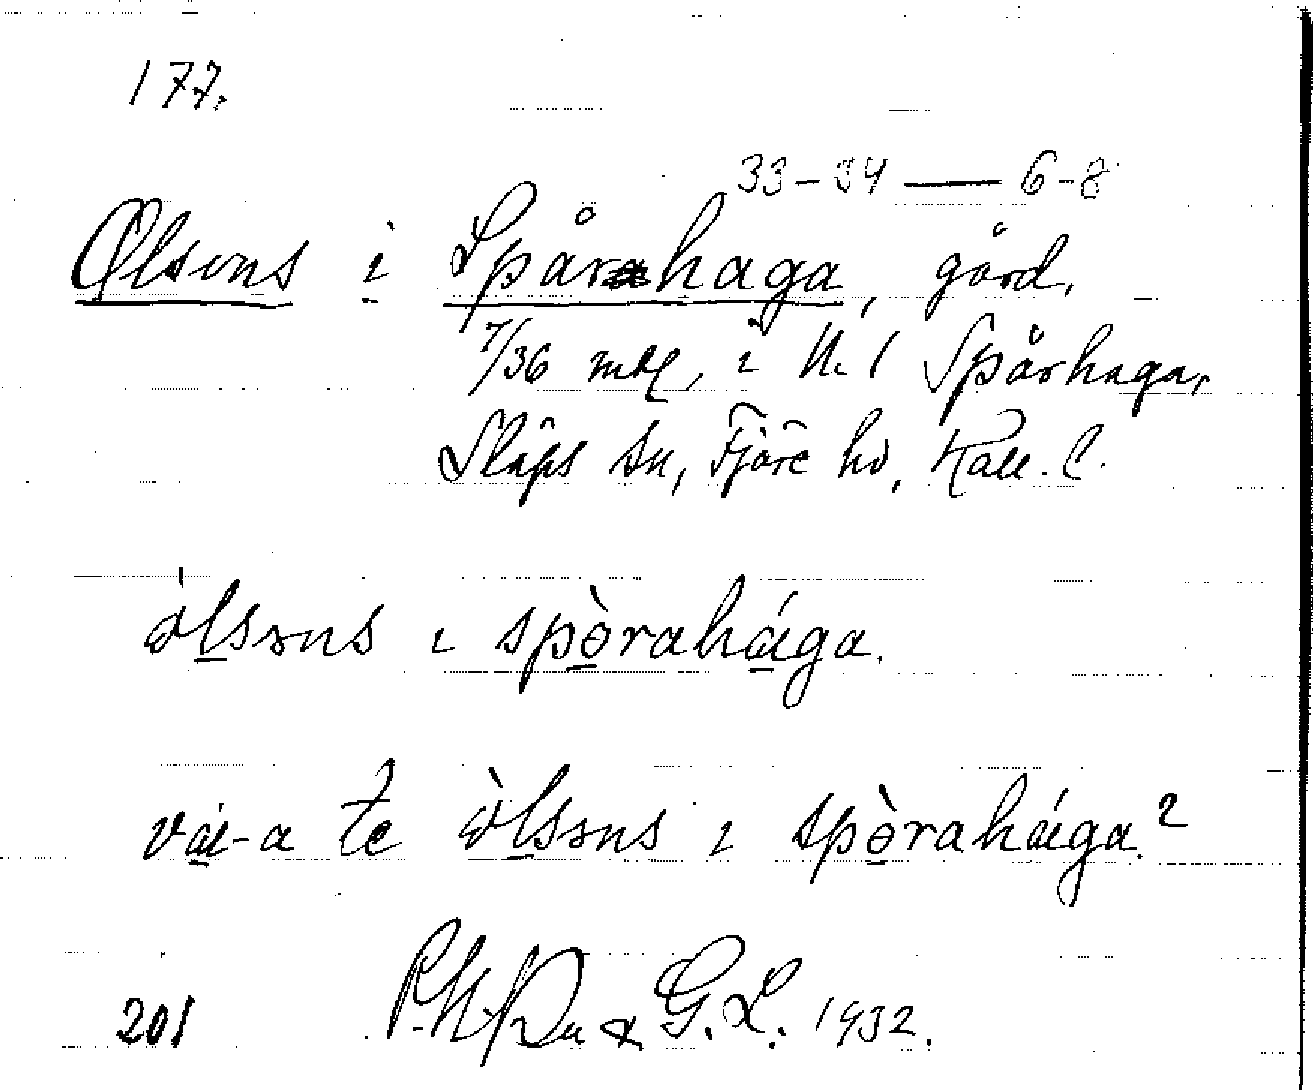 177.
33-34 — 6-8
Olsons i Spårahaga, gård,
7/36 mtl, i N. 1 Spårhaga,
Släps sn, Fjäre hd, Hall. l.
òlsons ı spòrahága.
vá-a te òlsons ı spòrahága?
201 & G. L. 1932.